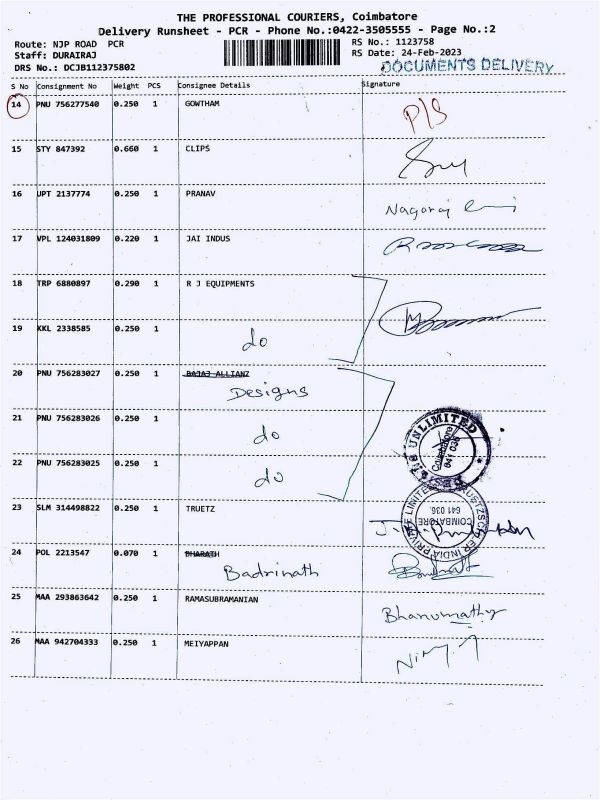 THE PROFESSIONAL COURIERS, Coimbatore
Delivery Runsheet - PCR - Phone No.:0422-3505555 - Page No.:2
Route: NJP ROAD PCR
RS No.: 1123758
Staff: DURAIRAJ
RS Date: 24-Feb-2023
DRS No.: DCJB112375802
DOCUMENTS DELIVERY
S No Consignment No Weight PCS Consignee Details Signature
14 PNU 756277540 0.250 1 GOWTHAM P/S
15 STY 847392 0.660 1 CLIPS
16 UPT 2137774 0.250 1 PRANAV Nagaraj
17 VPL 124031809 0.220 1 JAI INDUS
18 TRP 6880897 0.290 1 R J EQUIPMENTS
19 KKL 2338585 0.250 1
do
20 PNU 756283027 0.250 1 BAJAJ ALLIANZ
Designs
21 PNU 756283026 0.250 1
do
22 PNU 756283025 0.250 1
do
UNLIMITED
Coimbatore
641 036
23 SLM 314498822 0.250 1 TRUETZ
PRIVATE LIMITED
COIMBATORE
641 036.
24 POL 2213547 0.070 1 BHARATH
Badrinath
25 MAA 293863642 0.250 1 RAMASUBRAMANIAN
Bhanumathy
26 MAA 942704333 0.250 1 MEIYAPPAN